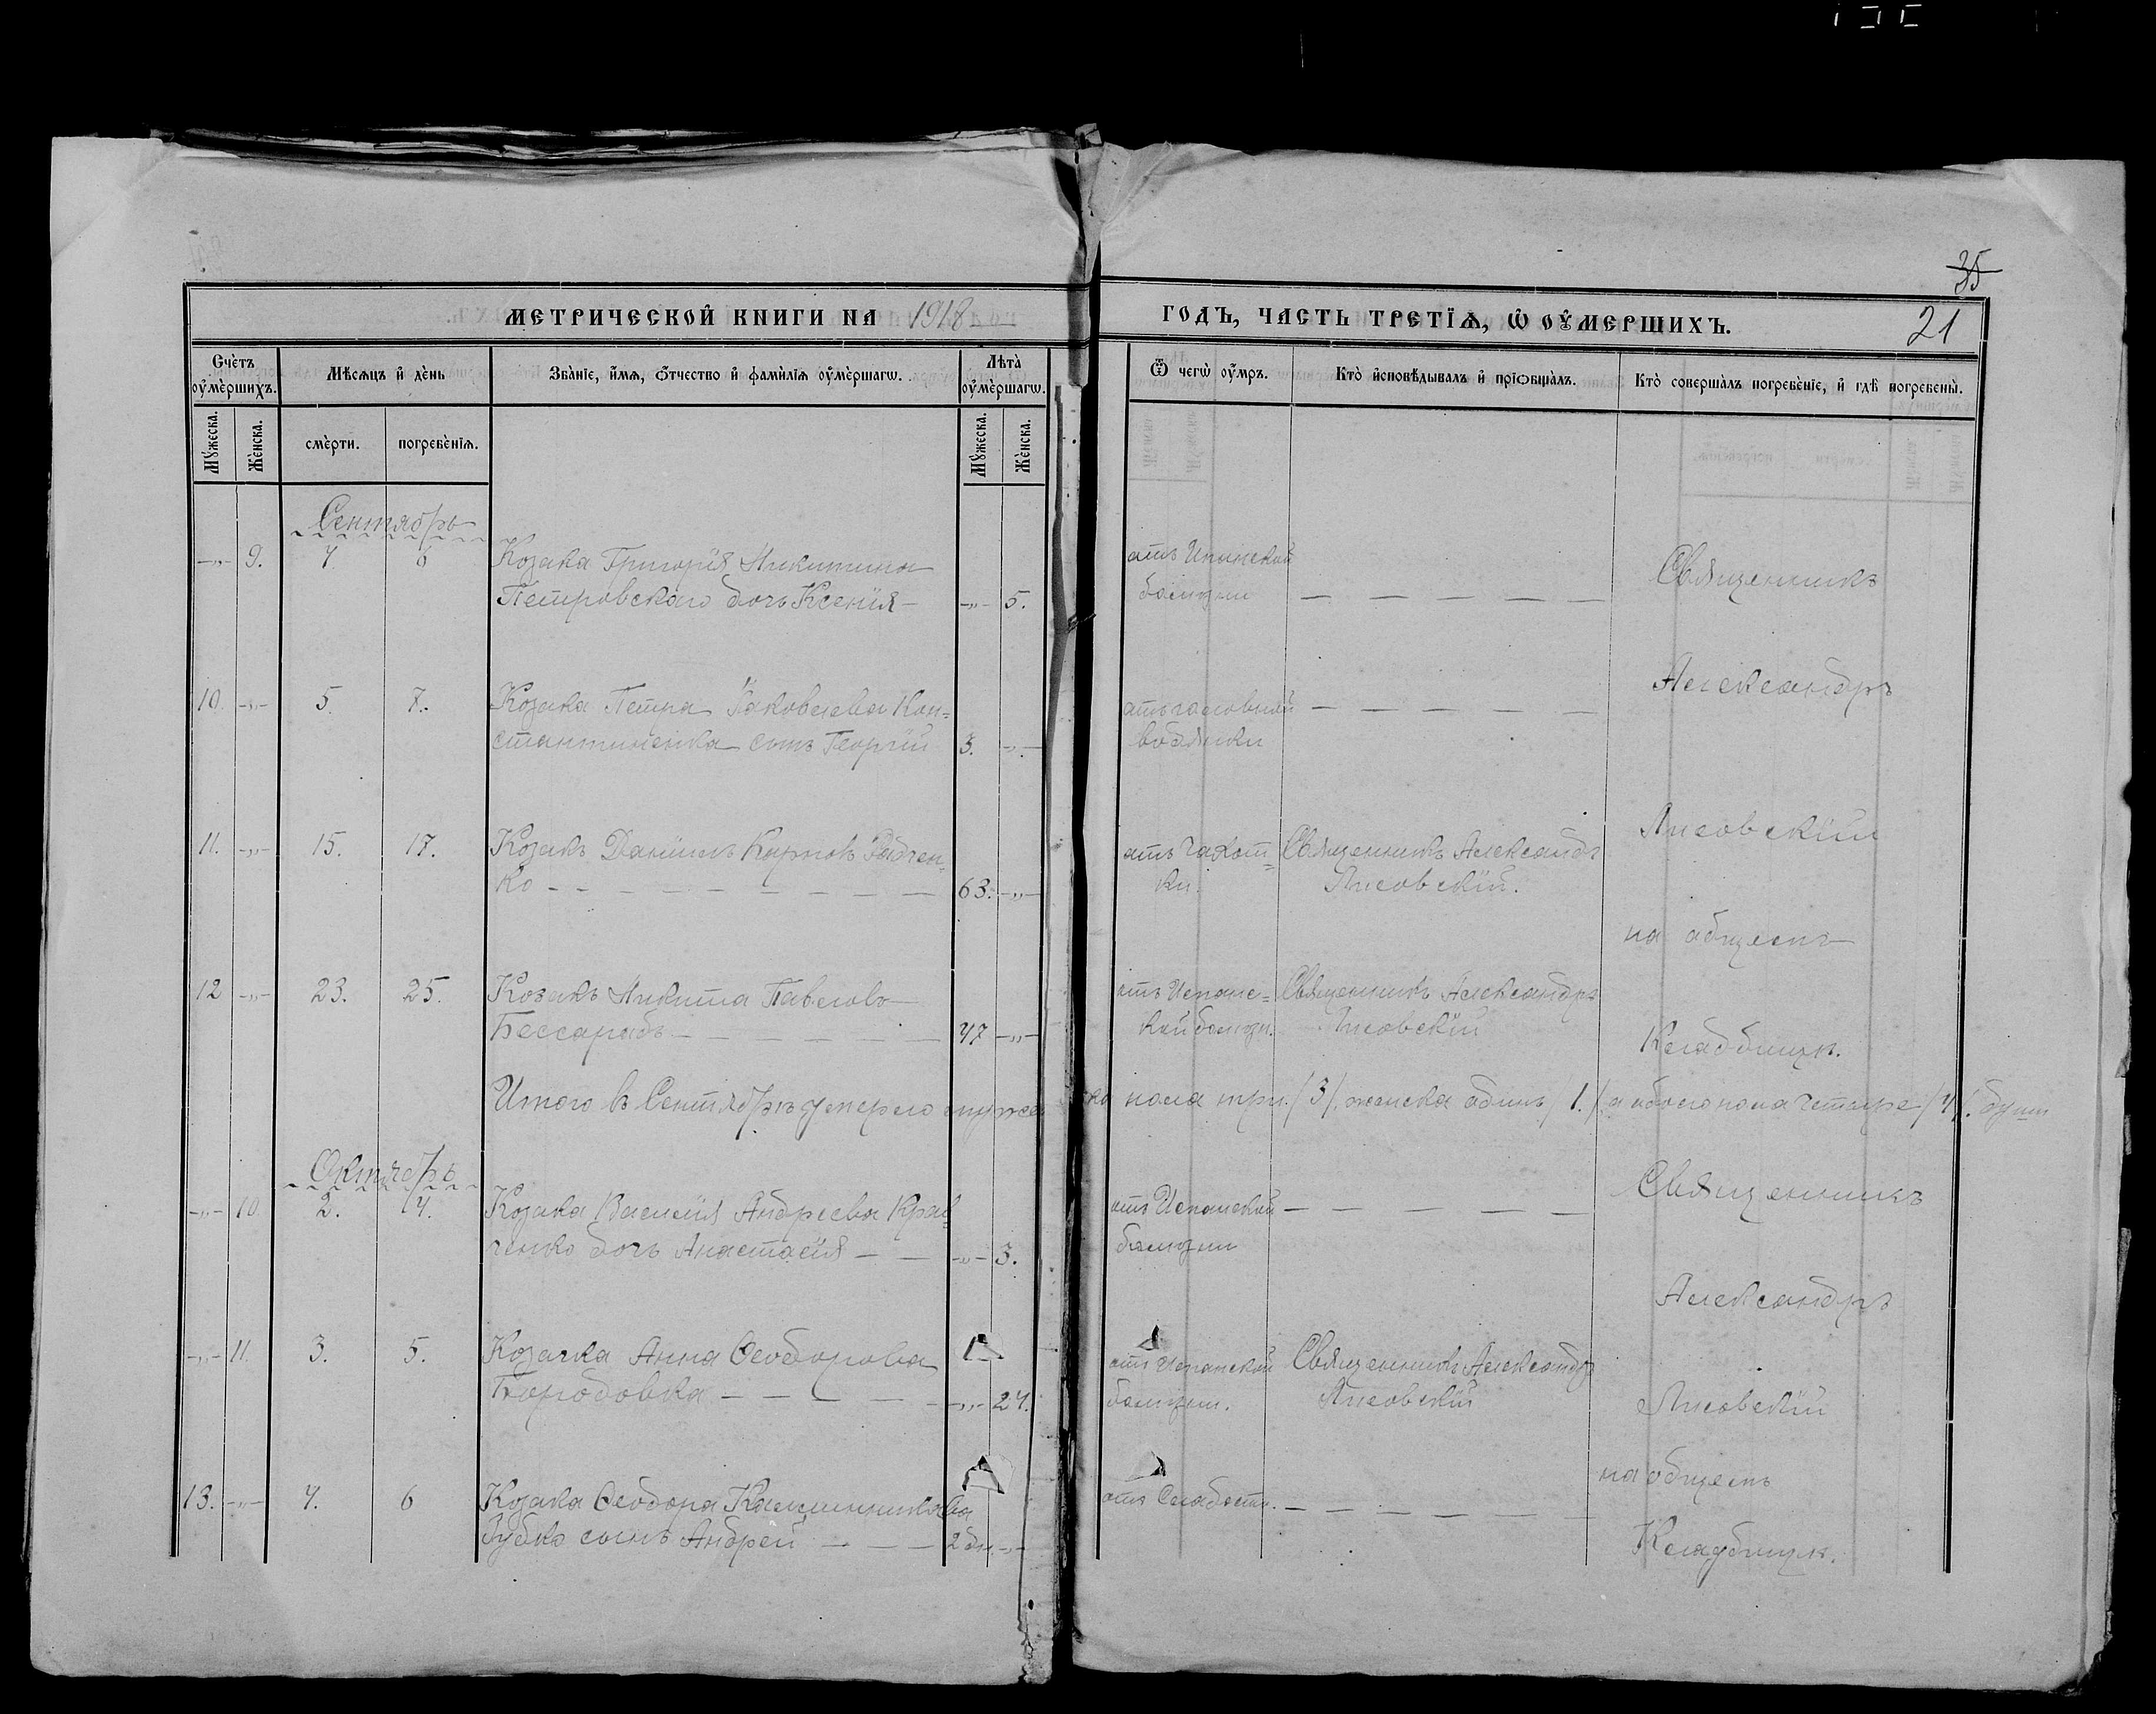 35
МЕТРИЧЕСКОЙ КНИГИ НА 1918
ГОДЪ, ЧАСТЬ ТРЕТІѦ, Ѡ ОУМЕРШИХЪ.
21
Счетъ оумершихъ.
Мѣсѧцъ и день
Званіе, имѧ, отчество и фамиліѧ оумершагѡ.
Лѣта оумершагѡ.
Ѿ чегѡ оумръ.
Кто исповѣдывалъ и пріѡбщалъ.
Кто совершалъ погребеніе, и гдѣ погребены.
Мужеска.
Женска.
смерти.
погребеніѧ.
Мужеска.
Женска.
Сентябрь
-„- 9. 4 6 Козака Григорія Никитина
Петровскаго дочь Ксенія -„- 5.
отъ Испанской
болѣзни
Священникъ
10. -„- 5. 7. Козака Петра Яковлева Кон=
стантиненка сынъ Георгій 3. -„-
отъ головной
водянки
Александръ
11. -„- 15. 17. Козакъ Даніилъ Карповъ
ко 63. -„-
отъ Чахот=
ки.
Священникъ Александръ
Лисовскій.
Лисовскій
на общемъ
12 -„- 23. 25. Козакъ Никита Павловъ
Бессарабъ 47 -„-
отъ Испанс=
кой болѣзн.
Священникъ Александръ
Лисовскій
Кладбищѣ.
Итого въ Сентябрѣ умерло мужеска пола три (3), женска одинъ (1.) а обоего пола четыре (4).
Октябрь
-„- 10 2. 4. Козака Василія Андреева Крав=
ченко дочь Анастасія -„- 3.
отъ Испанской
болѣзни
Священникъ
Александръ
-„- 11. 3. 5. Козачка Анна Ѳеодорова
Бородовка -„- 24.
отъ Испанской
болѣзни.
Священникъ Александръ
Лисовскій
Лисовскій
на общемъ
13. -„- 4. 6 Козака Ѳеодора Калинникова
Зубко сынъ Андрей 2 дн. -„-
отъ Слабости.
Кладбищѣ.